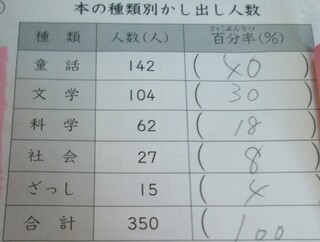 本の種類別かし出し人数
種類 人数(人) 百分率(%)
ひゃくぶんりつ
童話 142 ( 40 )
文学 104 ( 30 )
科学 62 ( 18 )
社会 27 ( 8 )
ざっし 15 ( 4 )
合計 350 ( 100